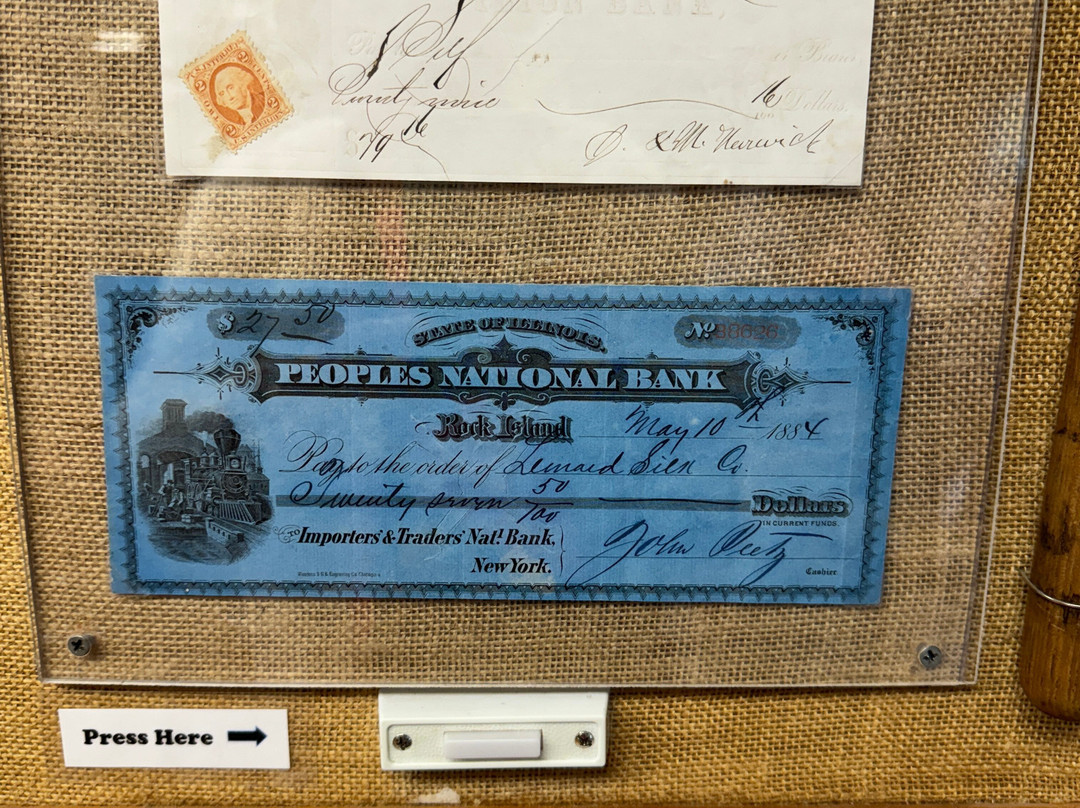 UNION BANK,
Self
or Bearer
Twenty nine 16 Dollars,
79 16
& M. Warwick
$27 50
STATE OF ILLINOIS.
No 38626
PEOPLES NATIONAL BANK
Rock Island May 10th 1884
Pay to the order of Lemard Silk Co.
Twenty seven 50/100 Dollars
IN CURRENT FUNDS.
Importers' & Traders' Nat'l Bank,
New York.
John Peetz
Cashier.
Press Here